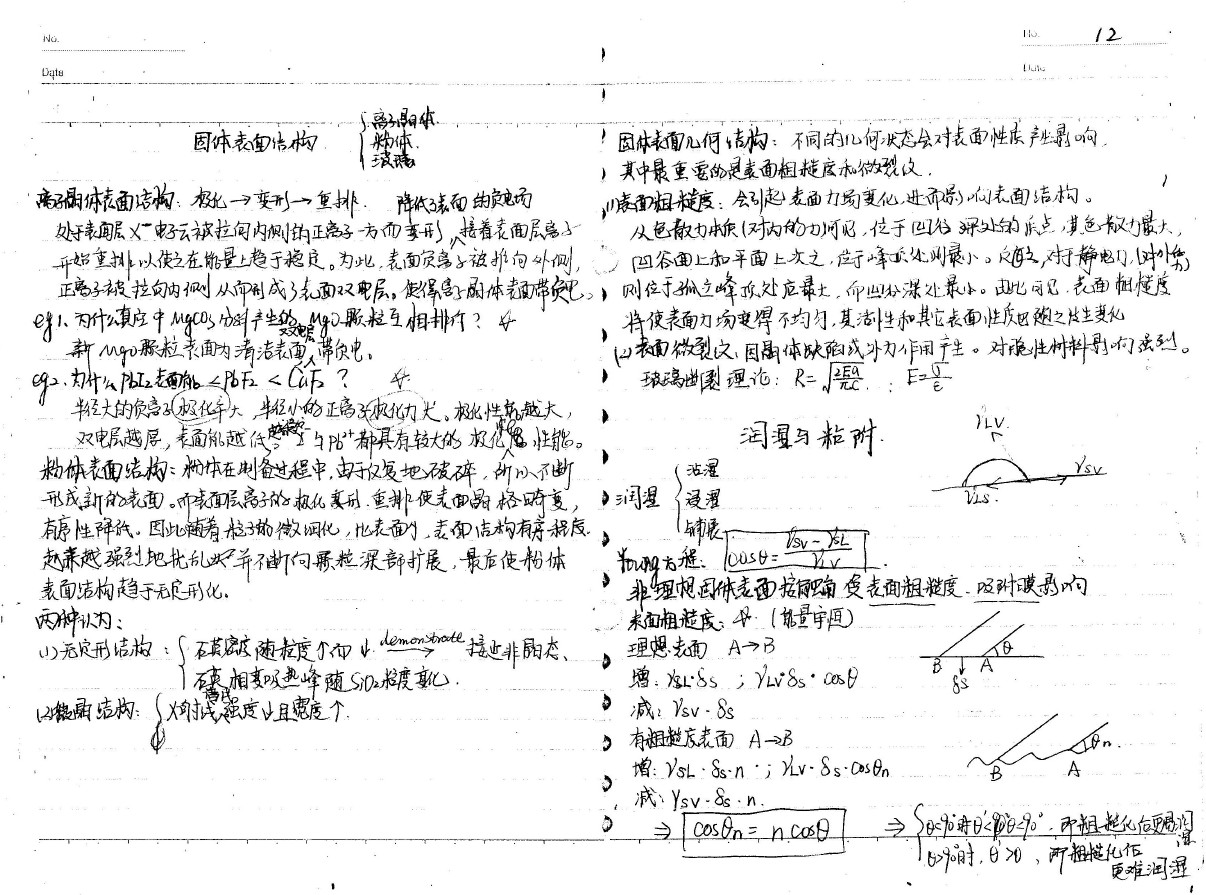 No.
Date
固体表面结构 { 离子晶体.
粉体.
玻璃
离子晶体表面结构: 极化→变形→重排. 降低了表面的负电场
处于表面层X⁻电子云被拉向内侧的正离子一方而变形, 接着表面层离子
开始重排以使之在能量上趋于稳定。为此, 表面负离子被推向外侧,
正离子被拉向内侧从而形成了表面双电层。使得离子晶体表面带负电。
eg1. 为什么真空中MgCO₃分解产生的MgO颗粒互相排斥?
双电层
新MgO颗粒表面为清洁表面, 带负电。
eg2. 为什么PbI₂表面能<PbF₂<CaF₂?
半径大的负离子极化率大, 半径小的正离子极化力大。极化性能越大,
双电层越厚, 表面能越低。 I⁻与Pb²⁺都具有较大的极化性能。
粉体表面结构: 粉体在制备过程中, 由于反复地破碎, 所以不断
形成新的表面。而表面层离子的极化变形.重排使表面晶格畸变,
有序性降低。因此随着粒子的微细化, 比表面↑, 表面结构有序程度
越来越强烈地扰乱并不断向颗粒深部扩展, 最后使粉体
表面结构趋于无定形化。
两种认为:
(1)无定形结构: { 石英密度随粒度↑而↓ demonstrate→ 接近非晶态.
石英相变吸热峰随SiO₂粒度变化.
(2)微晶结构: { X射线强度↓且宽度↑.
No. 12
Date
固体表面几何结构: 不同的几何状态会对表面性质产生影响.
其中最重要的是表面粗糙度和微裂纹.
(1)表面粗糙度: 会引起表面力场变化, 进而影响表面结构。
从色散力本质(对内的力)可见, 位于凹谷深处的质点, 其色散力最大,
凹谷面上和平面上次之, 位于峰顶处则最小。反之, 对于静电力,(对外的力)
则位于孤立峰顶处应最大, 而凹谷深处最小。由此可见, 表面粗糙度
将使表面力场变得不均匀, 其活性和其它表面性质也随之发生变化
(2)表面微裂纹, 因晶体缺陷或外力作用产生。对脆性材料影响强烈。
玻璃曲裂理论: R=√(2Eα/πC) ; E=σ/ε
润湿与粘附.
γLV.
γSV
γLS.
润湿 { 沾湿
浸湿
铺展
Young方程: cosθ = (γSV − γSL)/γLV
非理想固体表面接触角受表面粗糙度、吸附膜影响
表面粗糙度: (能量守恒)
理想表面 A→B
B A θ
δs
增: γSL·δs ; γLV·δs·cosθ
减: γSV·δs
有粗糙度表面 A→B
θn.
B A
增: γSL·δs·n ; γLV·δs·cosθn
减: γSV·δs·n.
⇒ cosθn = n cosθ ⇒ { θ<90°时θ'<θ<90°, 即粗糙化后更易润湿
θ>90°时, θ'>θ, 即粗糙化后更难润湿